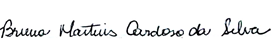 Bruna Martins Cardoso da Silva